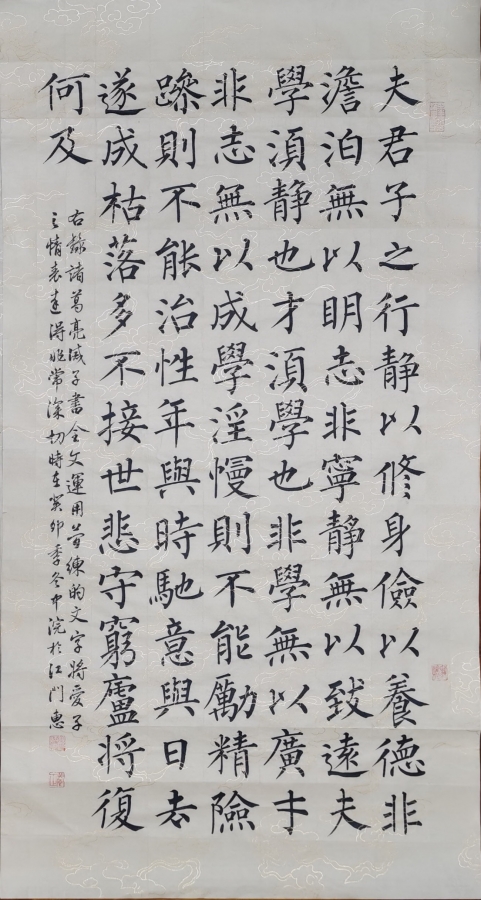 夫君子之行靜以修身儉以養德非
澹泊無以明志非寧靜無以致遠夫
學須靜也才須學也非學無以廣才
非志無以成學淫慢則不能勵精險
躁則不能治性年與時馳意與日去
遂成枯落多不接世悲守窮廬將復
何及
右錄諸葛亮誡子書全文運用簡練的文字將愛子
之情表達得非常深切時在癸卯季冬中浣於江門惠